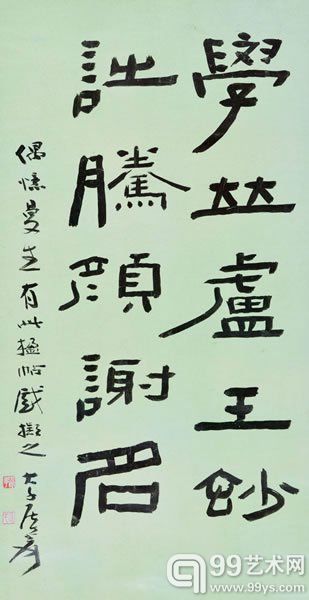 學竝盧王妙
詩騰顏謝名
偶憶曼生有此楹帖戲擬之 大千居士爰
99艺术网
www.99ys.com